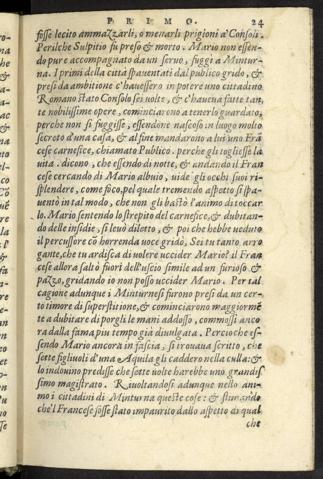 PRIMO. 24
fosse lecito ammazzarli, o menarli prigioni a' Consoli.
Perilche Sulpitio fu preso & morto. Mario non essen-
do pure accompagnato da un seruo, fuggì a Mintur-
na. I primi della città spauentati dal publico grido, &
presi da ambitione c'hauessero in potere uno cittadino
Romano stato Consolo sei uolte, & c'haueua fatte tan-
te nobilissime opere, cominciarono a tenerlo guardato,
perche non si fuggisse, essendone nascosto in luogo molto
secreto d'una casa, & al fine mandarono a lui uno Fra̅
cese carnefice, chiamato Publico. perche gli togliesse la
uita. dicono, che essendo di notte, & andando il Fran
cese cercando di Mario albuio, uide gli occhi suoi ri-
splendere, come foco. pel quale tremendo aspetto si spa-
uentò in tal modo, che non gli bastò l'animo di toccar
lo. Mario sentendo lo strepito del carnefice, & dubitan-
do delle insidie, si leuò diletto, & poi che hebbe ueduto
il percussore co̅ horrenda uoce gridò, Sei tu tanto arro
gante, che tu ardisca di uolere uccider Mario? il Fran
cese allora saltò fuori dell'uscio simile ad un furioso, &
pazzo, gridando io non posso uccider Mario. Per tal
cagione adunque i Minturnesi furono presi da un cer-
to timore di superstitione, & cominciarono maggiorme̅
te a dubitare di porgli le mani addosso, commossi anco
ra dalla fama piu tempo già diuulgata. Percioche es-
sendo Mario ancora in fascia, si trouaua scritto, che
sette figliuoli d'una Aquila gli caddero nella culla: &
lo indouino predisse che sette uolte harebbe uno grandis
simo magistrato. Riuoltandosi adunque nello ani-
mo i cittadini di Minturna queste cose: & stimando
che'l Francese fosse stato impaurito dallo aspetto di quel
che